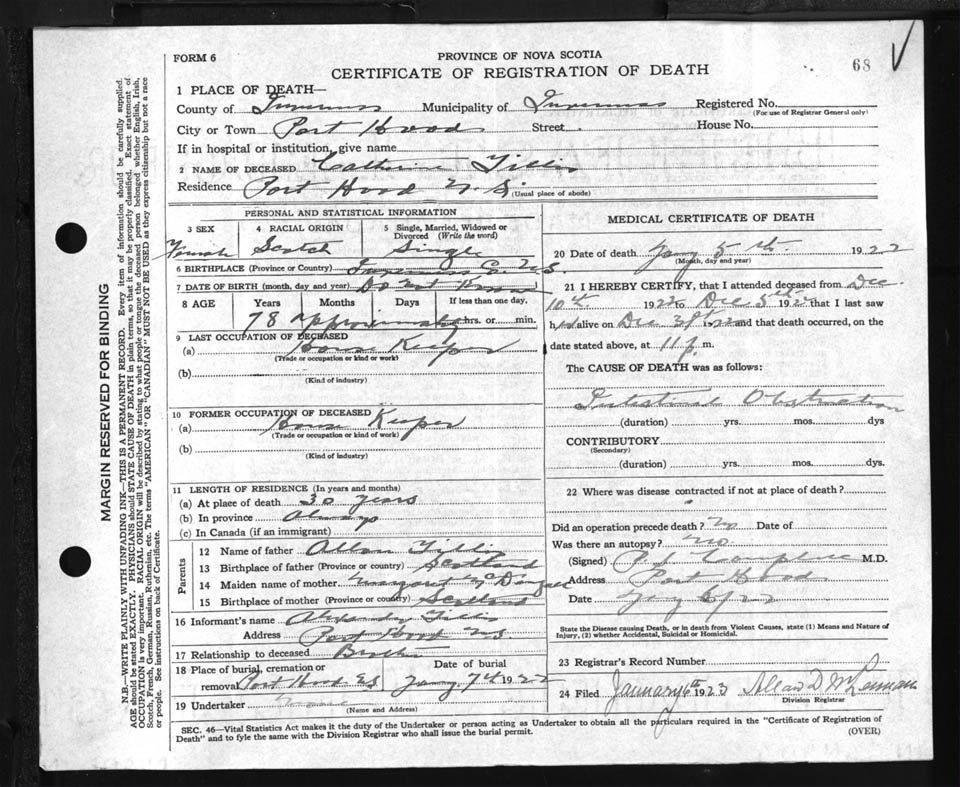 FORM 6
PROVINCE OF NOVA SCOTIA
CERTIFICATE OF REGISTRATION OF DEATH
68
1 PLACE OF DEATH—
County of Inverness Municipality of Inverness Registered No.
(For use of Registrar General only)
City or Town Port Hood Street House No.
If in hospital or institution, give name
2 NAME OF DECEASED Catherine Gillis
Residence Port Hood N. S.
(Usual place of abode)
PERSONAL AND STATISTICAL INFORMATION
3 SEX 4 RACIAL ORIGIN 5 Single, Married, Widowed or Divorced (Write the word)
Female Scotch Single
6 BIRTHPLACE (Province or Country) Inverness Co. N S
7 DATE OF BIRTH (month, day and year) Do not Know
8 AGE Years Months Days If less than one day,
78 approximately hrs. or min.
9 LAST OCCUPATION OF DECEASED
(a) House Keeper
(Trade or occupation or kind or work)
(b)
(Kind of industry)
10 FORMER OCCUPATION OF DECEASED
(a) House Keeper
(Trade or occupation or kind of work)
(b)
(Kind of industry)
11 LENGTH OF RESIDENCE (In years and months)
(a) At place of death 30 years
(b) In province Always
(c) In Canada (if an immigrant)
Parents
12 Name of father Allan Gillis
13 Birthplace of father (Province or country) Scotland
14 Maiden name of mother Margaret McDougall
15 Birthplace of mother (Province or country) Scotland
16 Informant's name Alexander Gillis
Address Port Hood N S
17 Relationship to deceased Brother
18 Place of burial, cremation or Date of burial
removal Port Hood Jany. 7th 1922
19 Undertaker
(Name and Address)
MEDICAL CERTIFICATE OF DEATH
20 Date of death Jany 5th 1922
(Month, day and year)
21 I HEREBY CERTIFY, that I attended deceased from Dec
10th 1922 to Dec 5th 1922 that I last saw
her alive on Dec and that death occurred, on the
date stated above, at 11 p. m.
The CAUSE OF DEATH was as follows:
Intestinal Obstruction
(duration) yrs. mos. dys
CONTRIBUTORY
(Secondary)
(duration) yrs. mos. dys.
22 Where was disease contracted if not at place of death?
Did an operation precede death? No Date of
Was there an autopsy? No
(Signed) Campbell M.D.
Address Port Hood
Date Jany
State the Disease causing Death, or in death from Violent Causes, state (1) Means and Nature of
Injury, (2) whether Accidental, Suicidal or Homicidal.
23 Registrar's Record Number
24 Filed January 6th 1923 Allan D McLennan
Division Registrar
SEC. 46—Vital Statistics Act makes it the duty of the Undertaker or person acting as Undertaker to obtain all the particulars required in the "Certificate of Registration of
Death" and to fyle the same with the Division Registrar who shall issue the burial permit.
(OVER)
MARGIN RESERVED FOR BINDING
N.B.—WRITE PLAINLY WITH UNFADING INK—THIS IS A PERMANENT RECORD. Every item of information should be carefully supplied.
AGE should be stated EXACTLY. PHYSICIANS should STATE CAUSE OF DEATH in plain terms, so that it may be properly classified. Exact statement of
OCCUPATION is very important. RACIAL ORIGIN will be described by stating to what people or tongue the deceased person belonged whether English, Irish,
Scotch, French, German, Russian, Ruthenian, etc. The terms "AMERICAN" or "CANADIAN" MUST NOT BE USED as they express citizenship but not a race
or people. See instructions on back of Certificate.